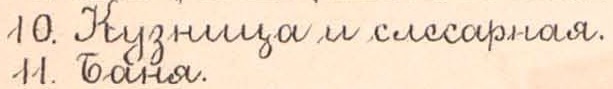 10. Кузница и слесарная.
11. Баня.